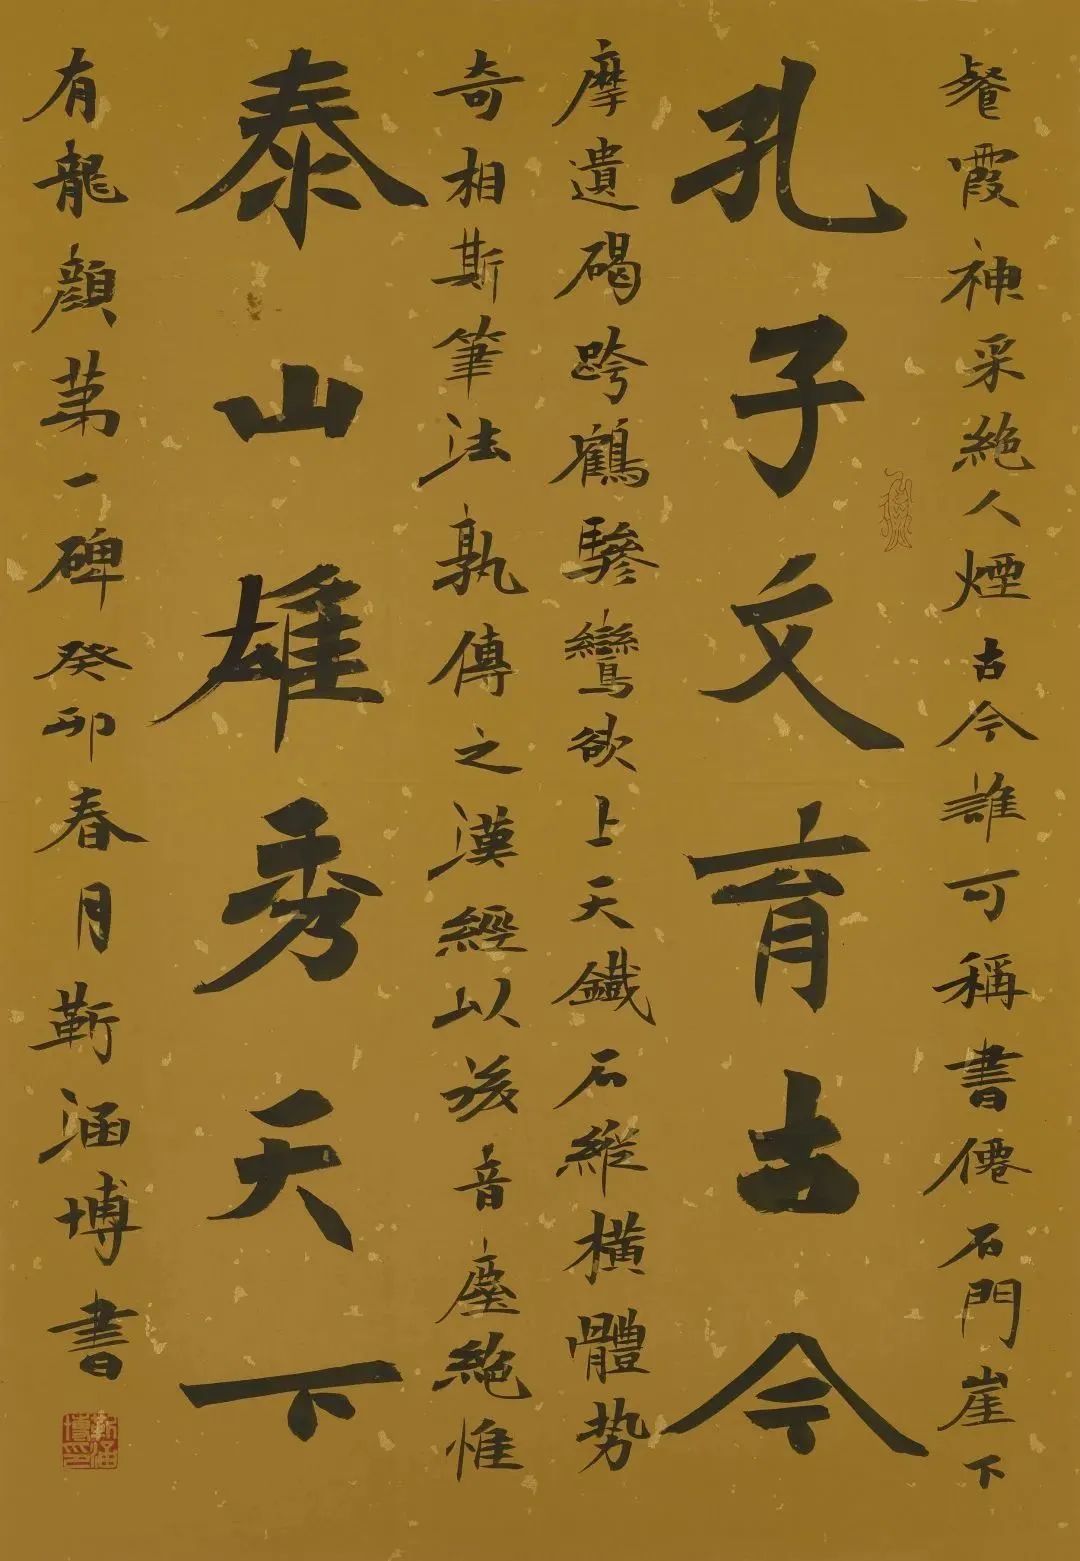 餐霞神采絶人煙古今誰可稱書僊石門崖下
孔子文育古今
摩遺碣跨鶴驂鸞欲上天鐵石縱橫體势
奇相斯筆法孰傳之漢經以後音塵絶惟
泰山雄秀天下
有龍顔苐一碑癸卯春月靳涵博書
靳涵博印